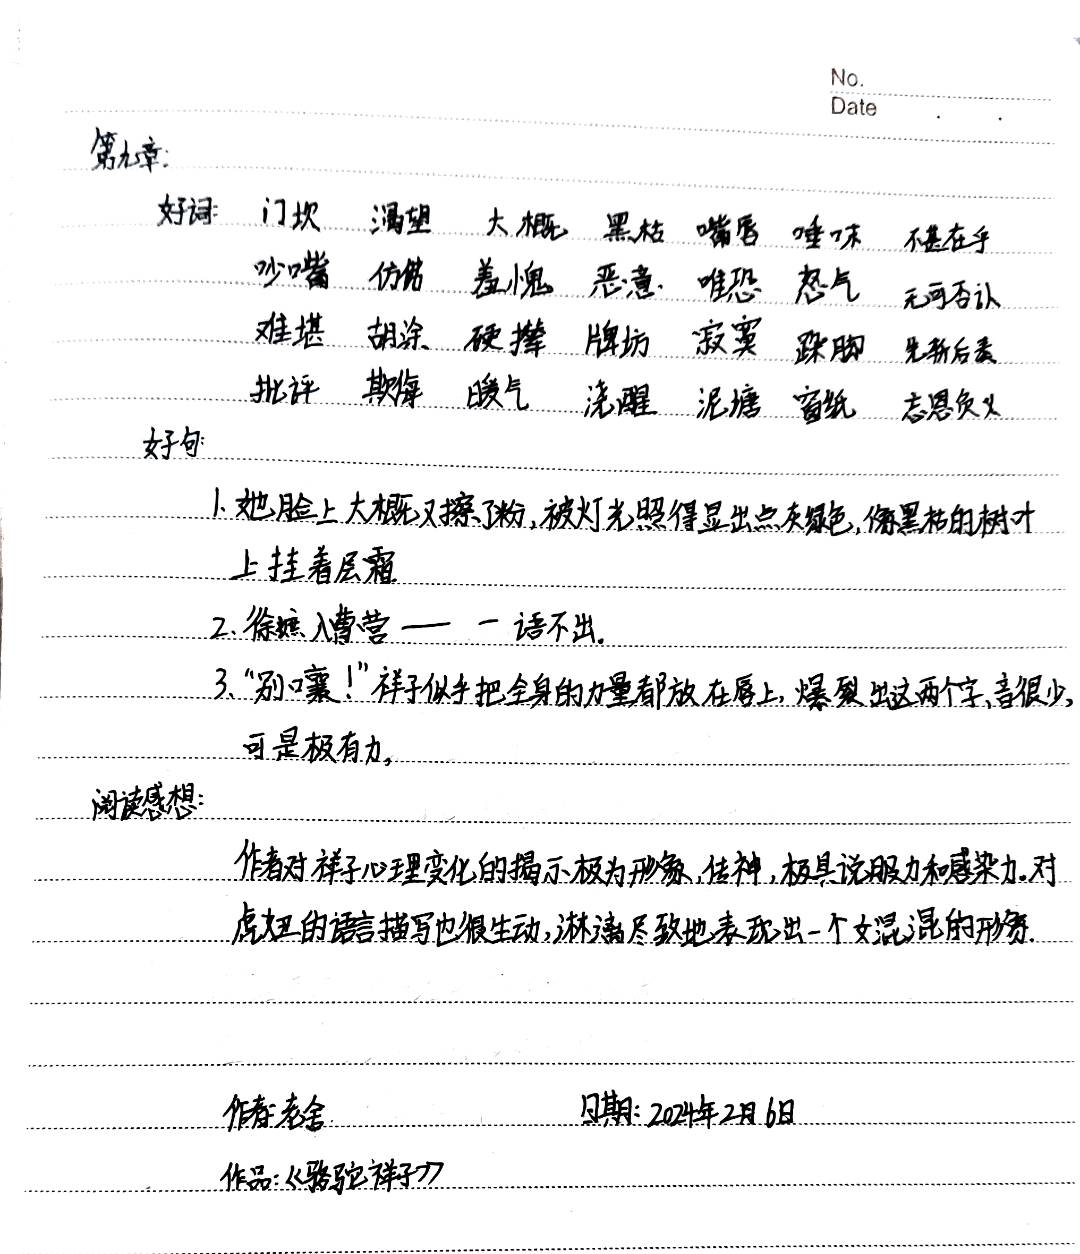 No.
Date
第九章:
好词: 门坎 渴望 大概 黑枯 嘴唇 唾沫 不甚在乎
吵嘴 仿佛 羞愧 恶意 唯恐 怒气 无可否认
难堪 胡涂 硬撑 牌坊 寂寞 跺脚 先斩后奏
批评 欺侮 暖气 浇醒 泥塘 窗纸 忘恩负义
好句:
1. 她脸上大概又擦了粉,被灯光照得显出点灰绿色,像黑枯的树叶
上挂着层霜
2、徐庶入曹营 —— 一语不出。
3、“别嚷!”祥子似乎把全身的力量都放在唇上,爆裂出这两个字,音很少,
可是极有力。
阅读感想:
作者对祥子心理变化的揭示极为形象,传神,极具说服力和感染力。对
虎妞的语言描写也很生动,淋漓尽致地表现出一个女混混的形象.
作者:老舍 日期:2024年2月6日
作品:《骆驼祥子》